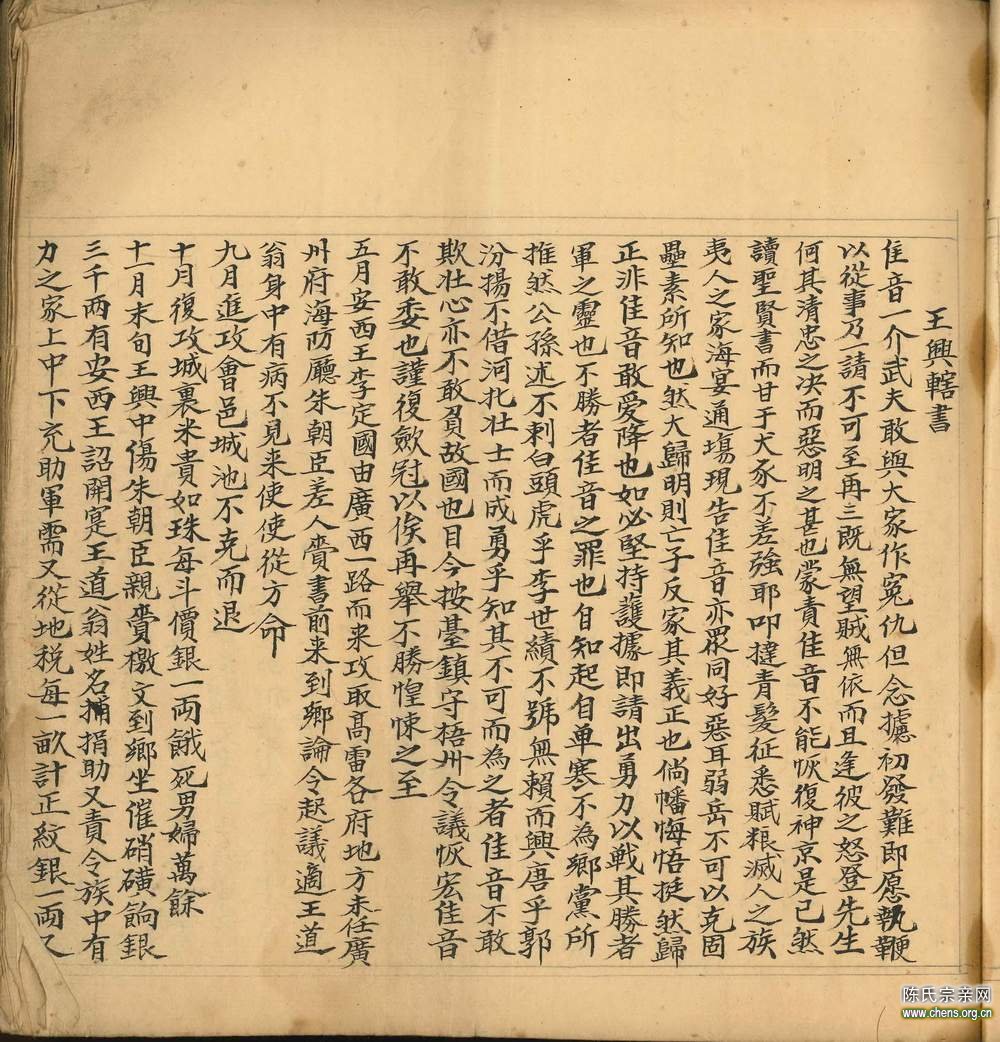 王興轄書
佳音一介武夫敢與大家作寃仇但念據初發難即愿執鞭
以從事乃一請不可至再三既無望賊無依而且逢彼之怒登先生
何其清忠之决而惡明之甚也蒙責佳音不能恢復神京是已然
讀聖賢書而甘于犬豕不差強耶叩撻青髮征悉賦粮滅人之族
夷人之家海宴通塲現告佳音亦眾同好惡耳弱岳不可以克固
壘素所知也然大歸明則亡子反家其義正也倘幡悔悟挺然歸
正非佳音敢愛降也如必堅持護據即請出勇力以戰其勝者
軍之靈也不勝者佳音之罪也自知起自单寒不為鄉黨所
推然公孫述不刺白頭虎乎李世績不號無賴而興唐乎郭
汾揚不借河北壮士而成勇乎知其不可而為之者佳音不敢
欺壮心亦不敢負故國也目今按臺鎮守梧州令議恢宏佳音
不敢委也謹復歛冠以俟再舉不勝惶悚之至
五月安西王李定國由廣西一路而来攻取高雷各府地方未任廣
州府海防廳朱朝臣差人賫書前来到鄉論令起議適王道
翁身中有病不見来使使從方命
九月進攻會邑城池不克而退
十月復攻城裏米貴如珠每斗價銀一両餓死男婦萬餘
十一月末旬王興中傷朱朝臣親賫檄文到鄉坐催硝磺餉銀
三千两有安西王詔開寔王道翁姓名捐助又責令族中有
力之家上中下充助軍需又從地税每一畝計正紋銀一両又
陈氏宗亲网
www.chens.org.cn